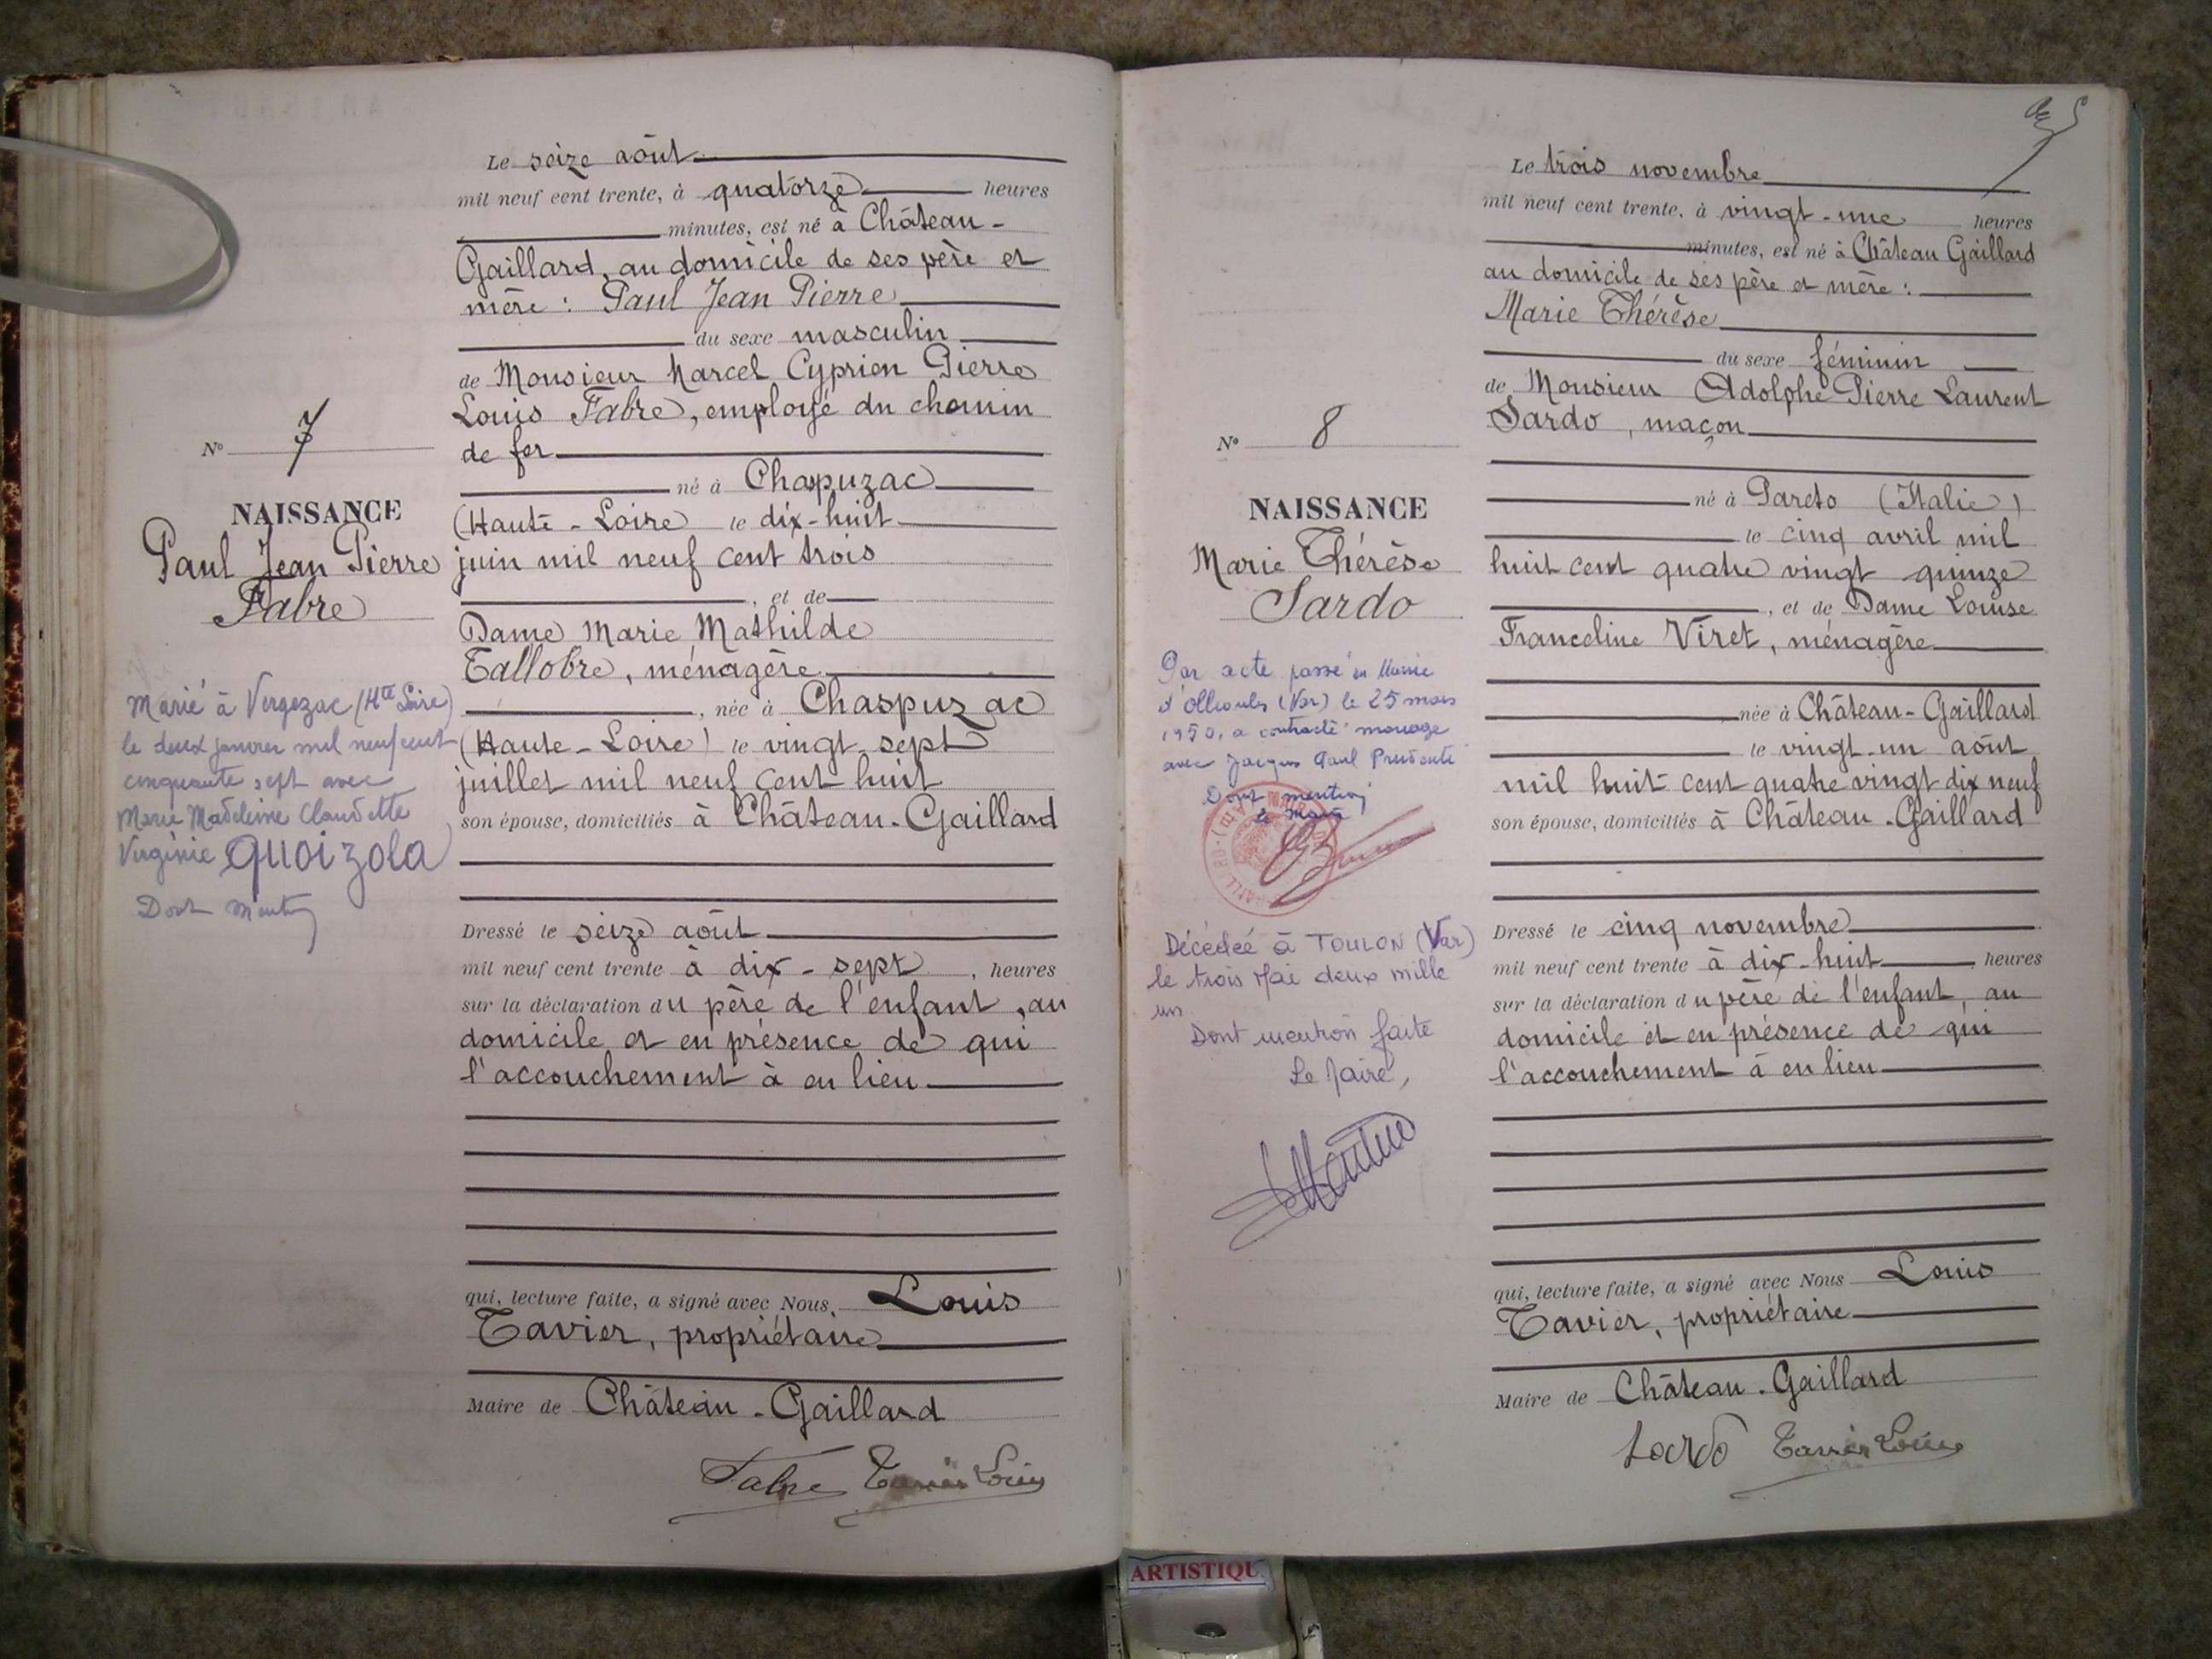 Le seize août
mil neuf cent trente, à quatorze heures
minutes, est né à Château-
Gaillard, au domicile de ses père et
mère : Paul Jean Pierre
du sexe masculin
de Monsieur Marcel Cyprien Pierre
Louis Fabre, employé du chemin
de fer
né à Chapuzac
(Haute-Loire) le dix-huit
juin mil neuf cent trois
, et de
Dame Marie Mathilde
Tallobre, ménagère
, née à Chaspuzac
(Haute-Loire) le vingt sept
juillet mil neuf cent huit
son épouse, domiciliés à Château-Gaillard
Dressé le seize août
mil neuf cent trente à dix-sept, heures
sur la déclaration du père de l'enfant, au
domicile et en présence de qui
l'accouchement à eu lieu
qui, lecture faite, a signé avec Nous, Louis
Tavier, propriétaire
Maire de Château-Gaillard
Fabre Tavier Louis
N° 7
NAISSANCE
Paul Jean Pierre
Fabre
Marié à Vergezac (Hte Loire)
le deux janvier mil neuf cent
cinquante sept avec
Marie Madeleine Claudette
Virginie QUOIZOLA
Dont Mention
Le trois novembre
mil neuf cent trente, à vingt-une heures
minutes, est né à Château Gaillard
au domicile de ses père et mère :
Marie Thérèse
du sexe féminin
de Monsieur Adolphe Pierre Laurent
Sardo, maçon
né à Pareto (Italie)
le cinq avril mil
huit cent quatre vingt quinze
, et de Dame Louise
Franceline Viret, ménagère
née à Château-Gaillard
le vingt-un août
mil huit cent quatre vingt dix neuf
son épouse, domiciliés à Château-Gaillard
Dressé le cinq novembre
mil neuf cent trente à dix-huit heures
sur la déclaration du père de l'enfant, au
domicile et en présence de qui
l'accouchement à eu lieu
qui, lecture faite, a signé avec Nous Louis
Tavier, propriétaire
Maire de Château-Gaillard
Sardo Tavier Louis
N° 8
NAISSANCE
Marie Thérèse
Sardo
Par acte passé en Mairie
d'Ollioules (Var) le 25 mars
1950, a contracté mariage
avec Jacques Paul Prudente
Dont mention
le Maire
Décédée à TOULON (Var)
le trois Mai deux mille
un
Dont mention faite
Le Maire,
ARTISTIQU